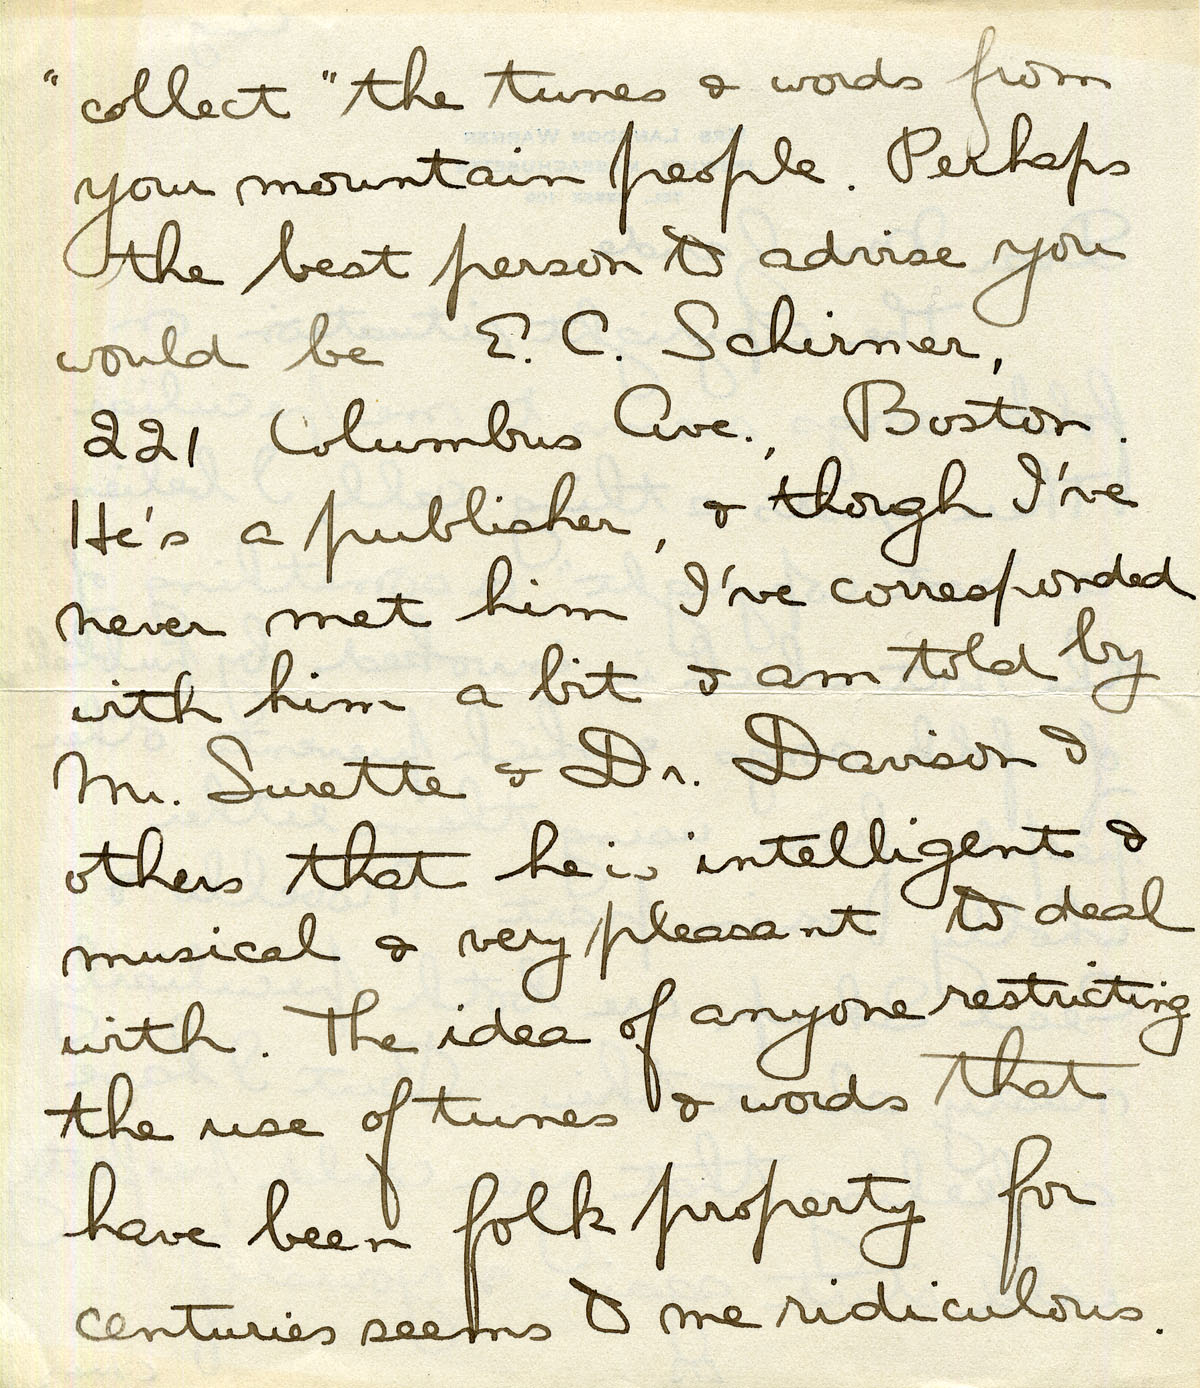 "collect" the tunes & words from
your mountain people. Perhaps
the best person to advise you
would be E. C. Schirmer,
221 Columbus Ave., Boston.
He's a publisher, & though I've
never met him I've corresponded
with him a bit & am told by
Mr. Surette & Dr. Davison &
others that he is intelligent &
musical & very pleasant to deal
with. The idea of anyone restricting
the use of tunes & words that
have been folk property for
centuries seems to me ridiculous.